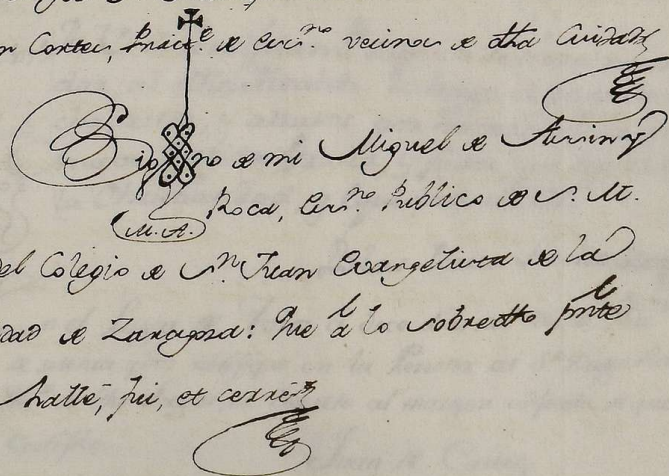 n Cortes, Practe. de Essno. vecinos de dha Ciudad
Sig no de mi Miguel de Assin y
Roca, Essno. Publico de S. M.
M. A.
del Colegio de Sn Juan Evangelista de la
dad de Zaragoza: Que a lo sobredho pnte
hallé, fui, et cerré